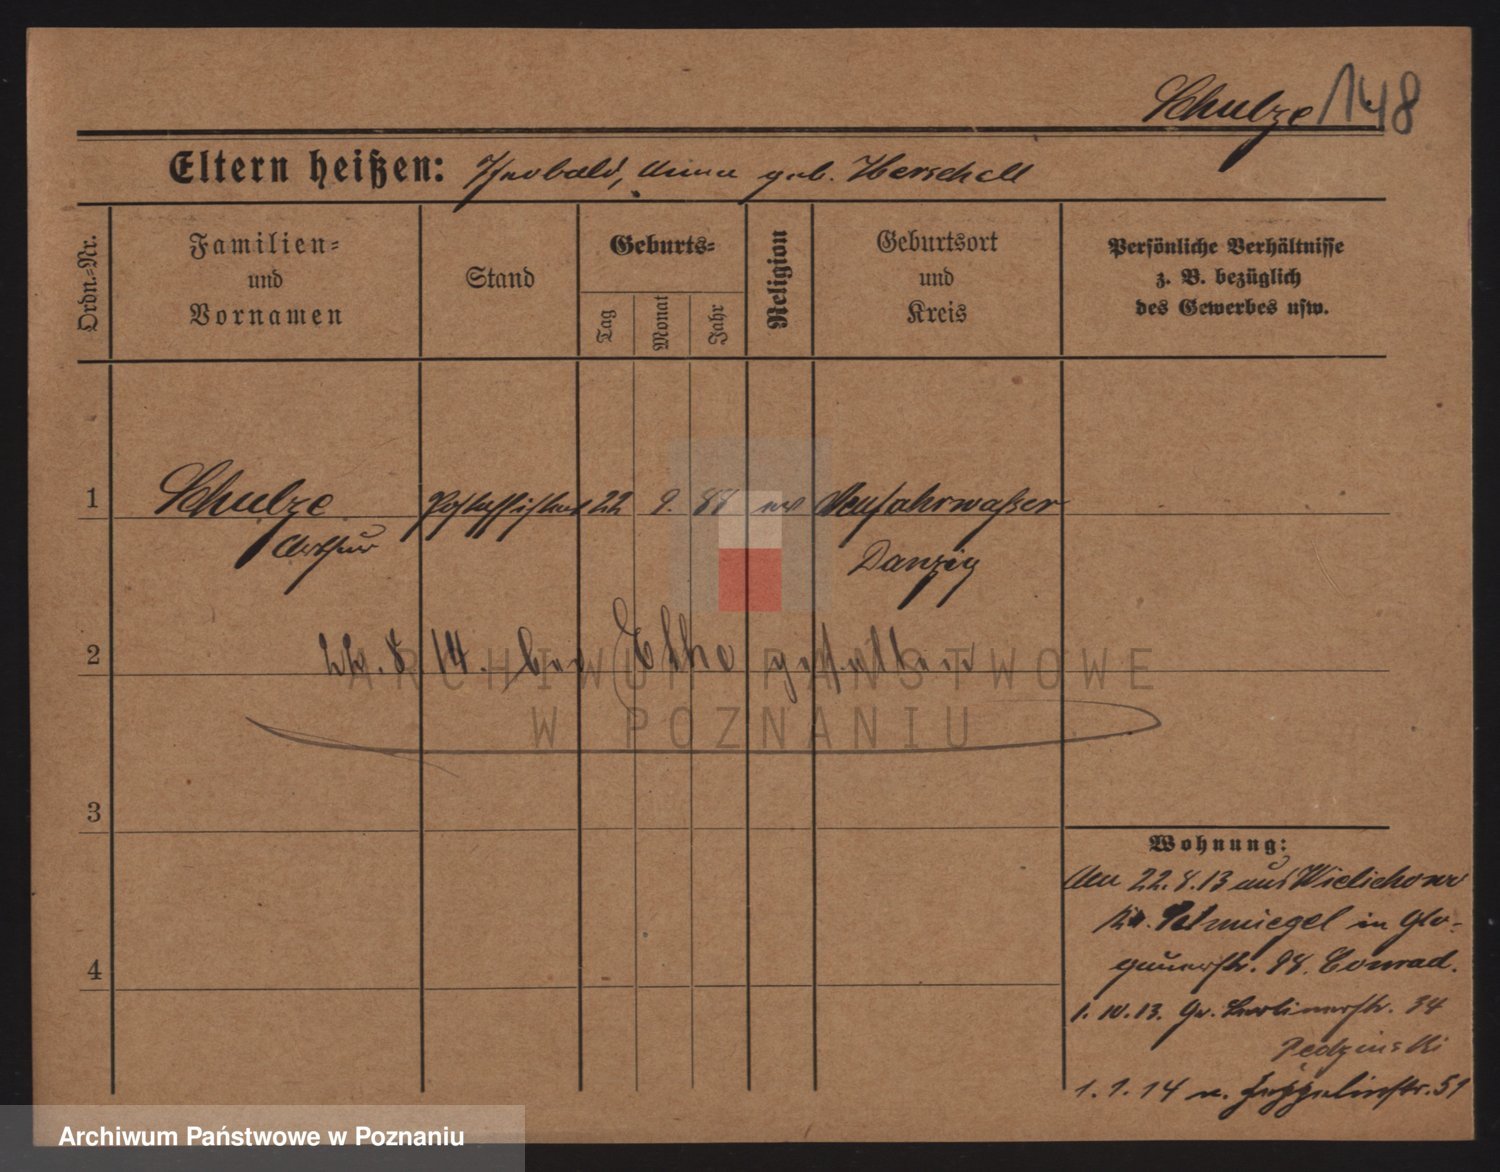 Schulze 148
Eltern heißen: Theobald, Anna geb. Herschell
Ordn.-Nr.
Familien-
und
Vornamen
Stand
Geburts-
Tag
Monat
Jahr
Religion
Geburtsort
und
Kreis
Persönliche Verhältnisse
z. B. bezüglich
des Gewerbes usw.
1 Schulze Postassistent 22 9. 88 ev Neufahrwasser
Arthur Danzig
2
8. 14. gefallen
ARCHIWUM PAŃSTWOWE
W POZNANIU
3
Wohnung:
22.8.13 aus Wielichowo
Kr. Schmiegel in Glo-
gauerstr. 98. Conrad.
4
1. 10. 13. Gr. Berlinerstr. 34
1. 1. 14 n. Zeppelinstr. 51
Archiwum Państwowe w Poznaniu